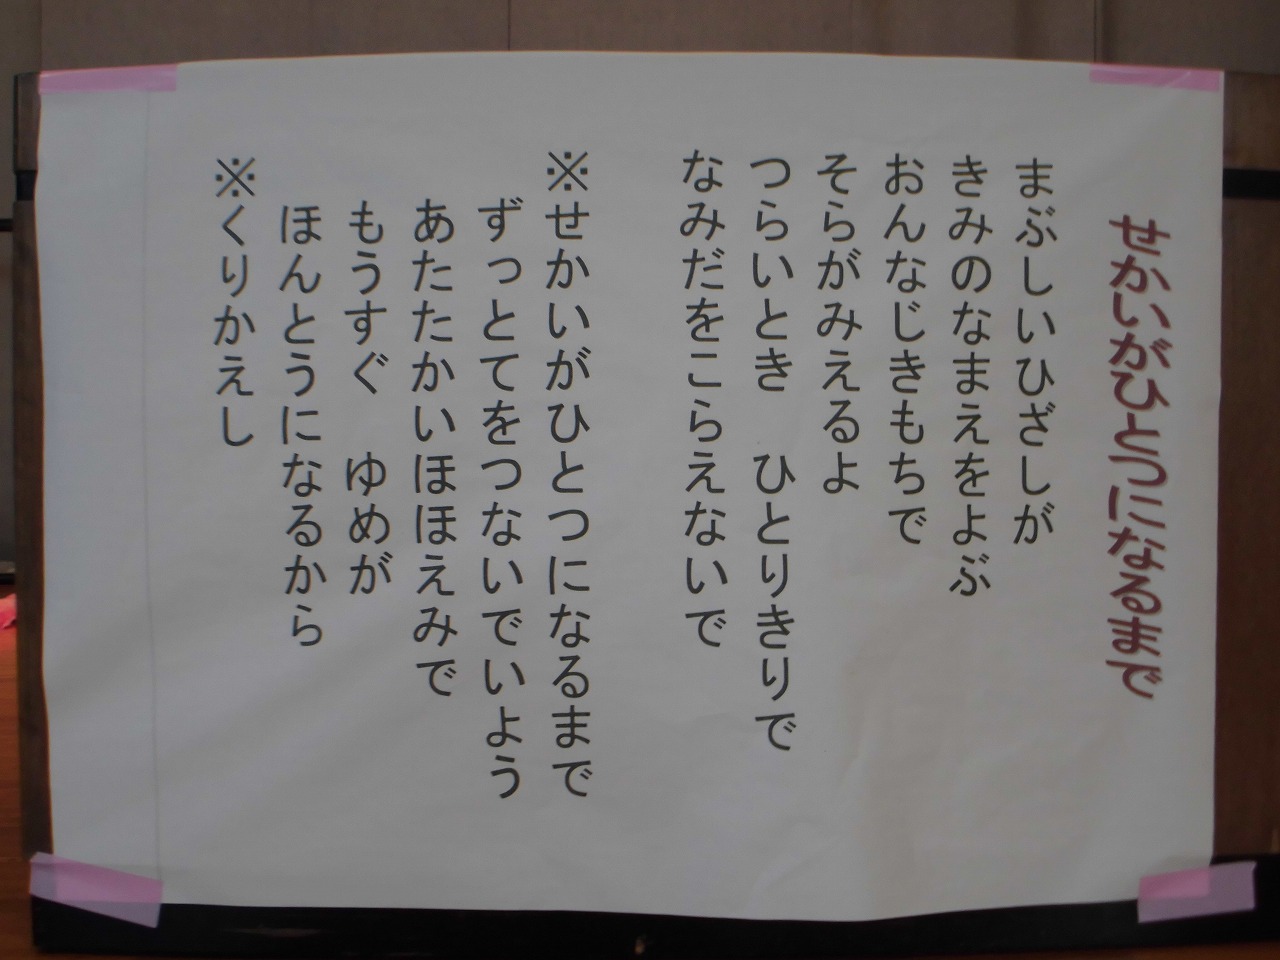 せかいがひとつになるまで
まぶしいひざしが
きみのなまえをよぶ
おんなじきもちで
そらがみえるよ
つらいとき　ひとりきりで
なみだをこらえないで
※せかいがひとつになるまで
ずっとてをつないでいよう
あたたかいほほえみで
もうすぐ　ゆめが
ほんとうになるから
※くりかえし